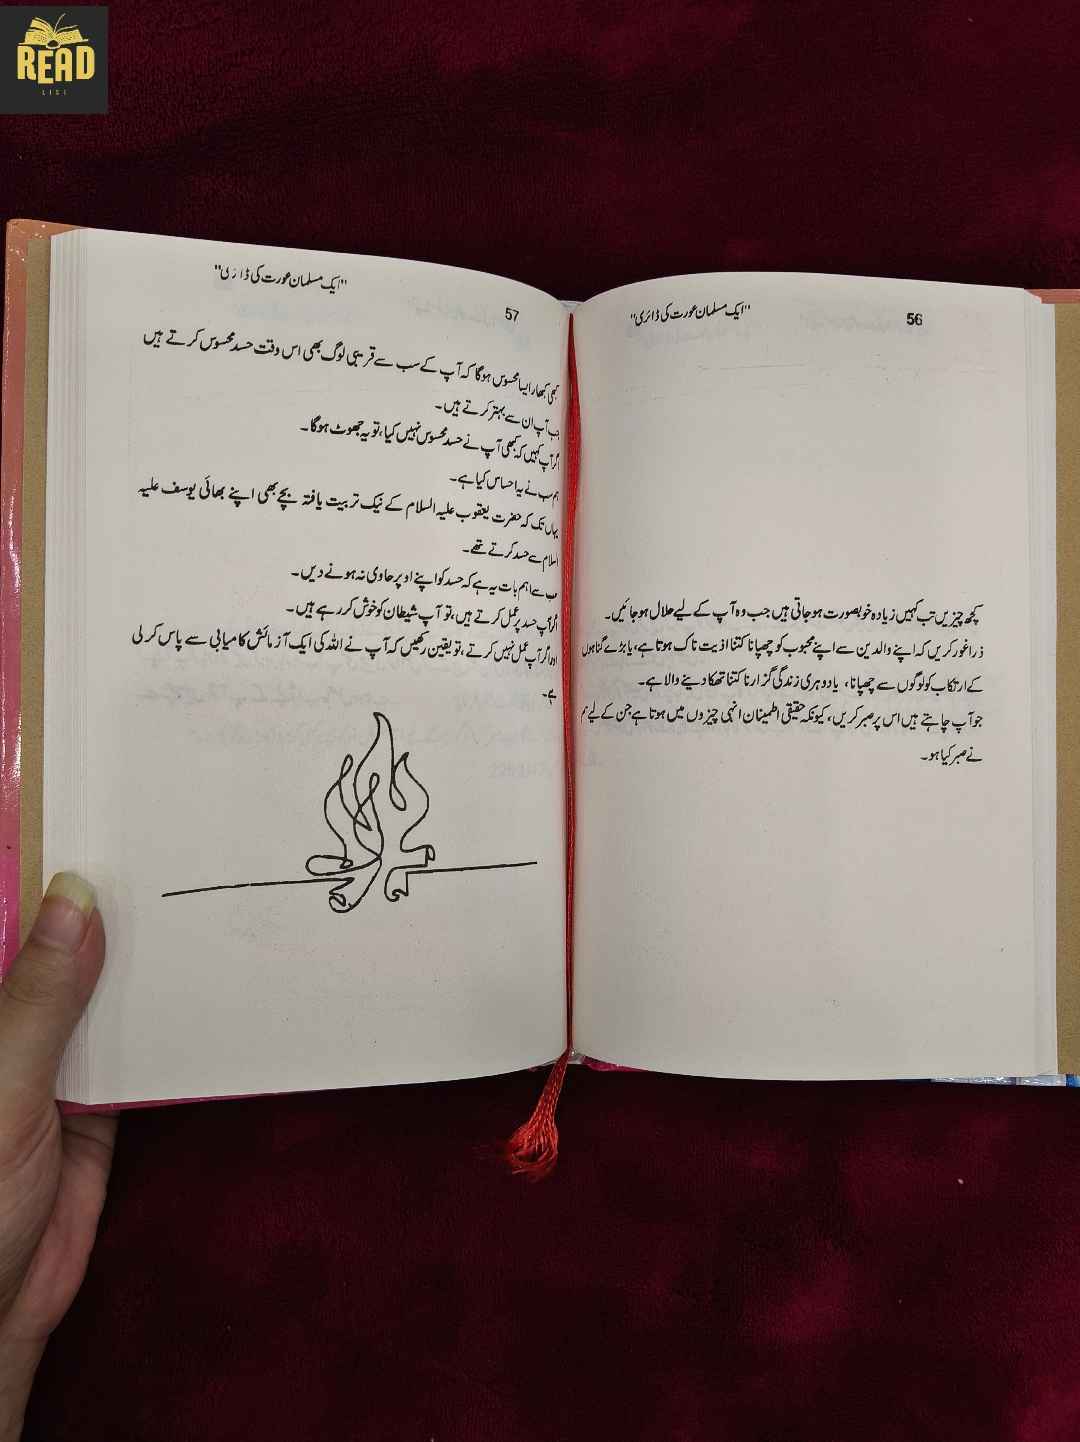 READ
LIST
"ایک مسلمان عورت کی ڈائری"
56
کچھ چیزیں تب کہیں زیادہ خوبصورت ہوجاتی ہیں جب وہ آپ کے لیے حلال ہوجائیں۔
ذرا غور کریں کہ اپنے والدین سے اپنے محبوب کو چھپانا کتنا اذیت ناک ہوتا ہے، یا بڑے گناہوں
کے ارتکاب کو لوگوں سے چھپانا، یا دوہری زندگی گزارنا کتنا تھکا دینے والا ہے۔
جو آپ چاہتے ہیں اس پر صبر کریں، کیونکہ حقیقی اطمینان انہی چیزوں میں ہوتا ہے جن کے لیے
نے صبر کیا ہو۔
"ایک مسلمان عورت کی ڈائری"
57
کبھی کبھار ایسا محسوس ہوگا کہ آپ کے سب سے قریبی لوگ بھی اس وقت حسد محسوس کرتے ہیں
جب آپ ان سے بہتر کرتے ہیں۔
اگر آپ کہیں کہ کبھی آپ نے حسد محسوس نہیں کیا، تو یہ جھوٹ ہوگا۔
ہم سب نے یہ احساس کیا ہے۔
یہاں تک کہ حضرت یعقوب علیہ السلام کے نیک تربیت یافتہ بچے بھی اپنے بھائی یوسف علیہ
السلام سے حسد کرتے تھے۔
سب سے اہم بات یہ ہے کہ حسد کو اپنے اوپر حاوی نہ ہونے دیں۔
اگر آپ حسد پر عمل کرتے ہیں، تو آپ شیطان کو خوش کر رہے ہیں۔
اور اگر آپ عمل نہیں کرتے، تو یقین رکھیں کہ آپ نے اللہ کی ایک آزمائش کامیابی سے پاس کر لی
ہے۔